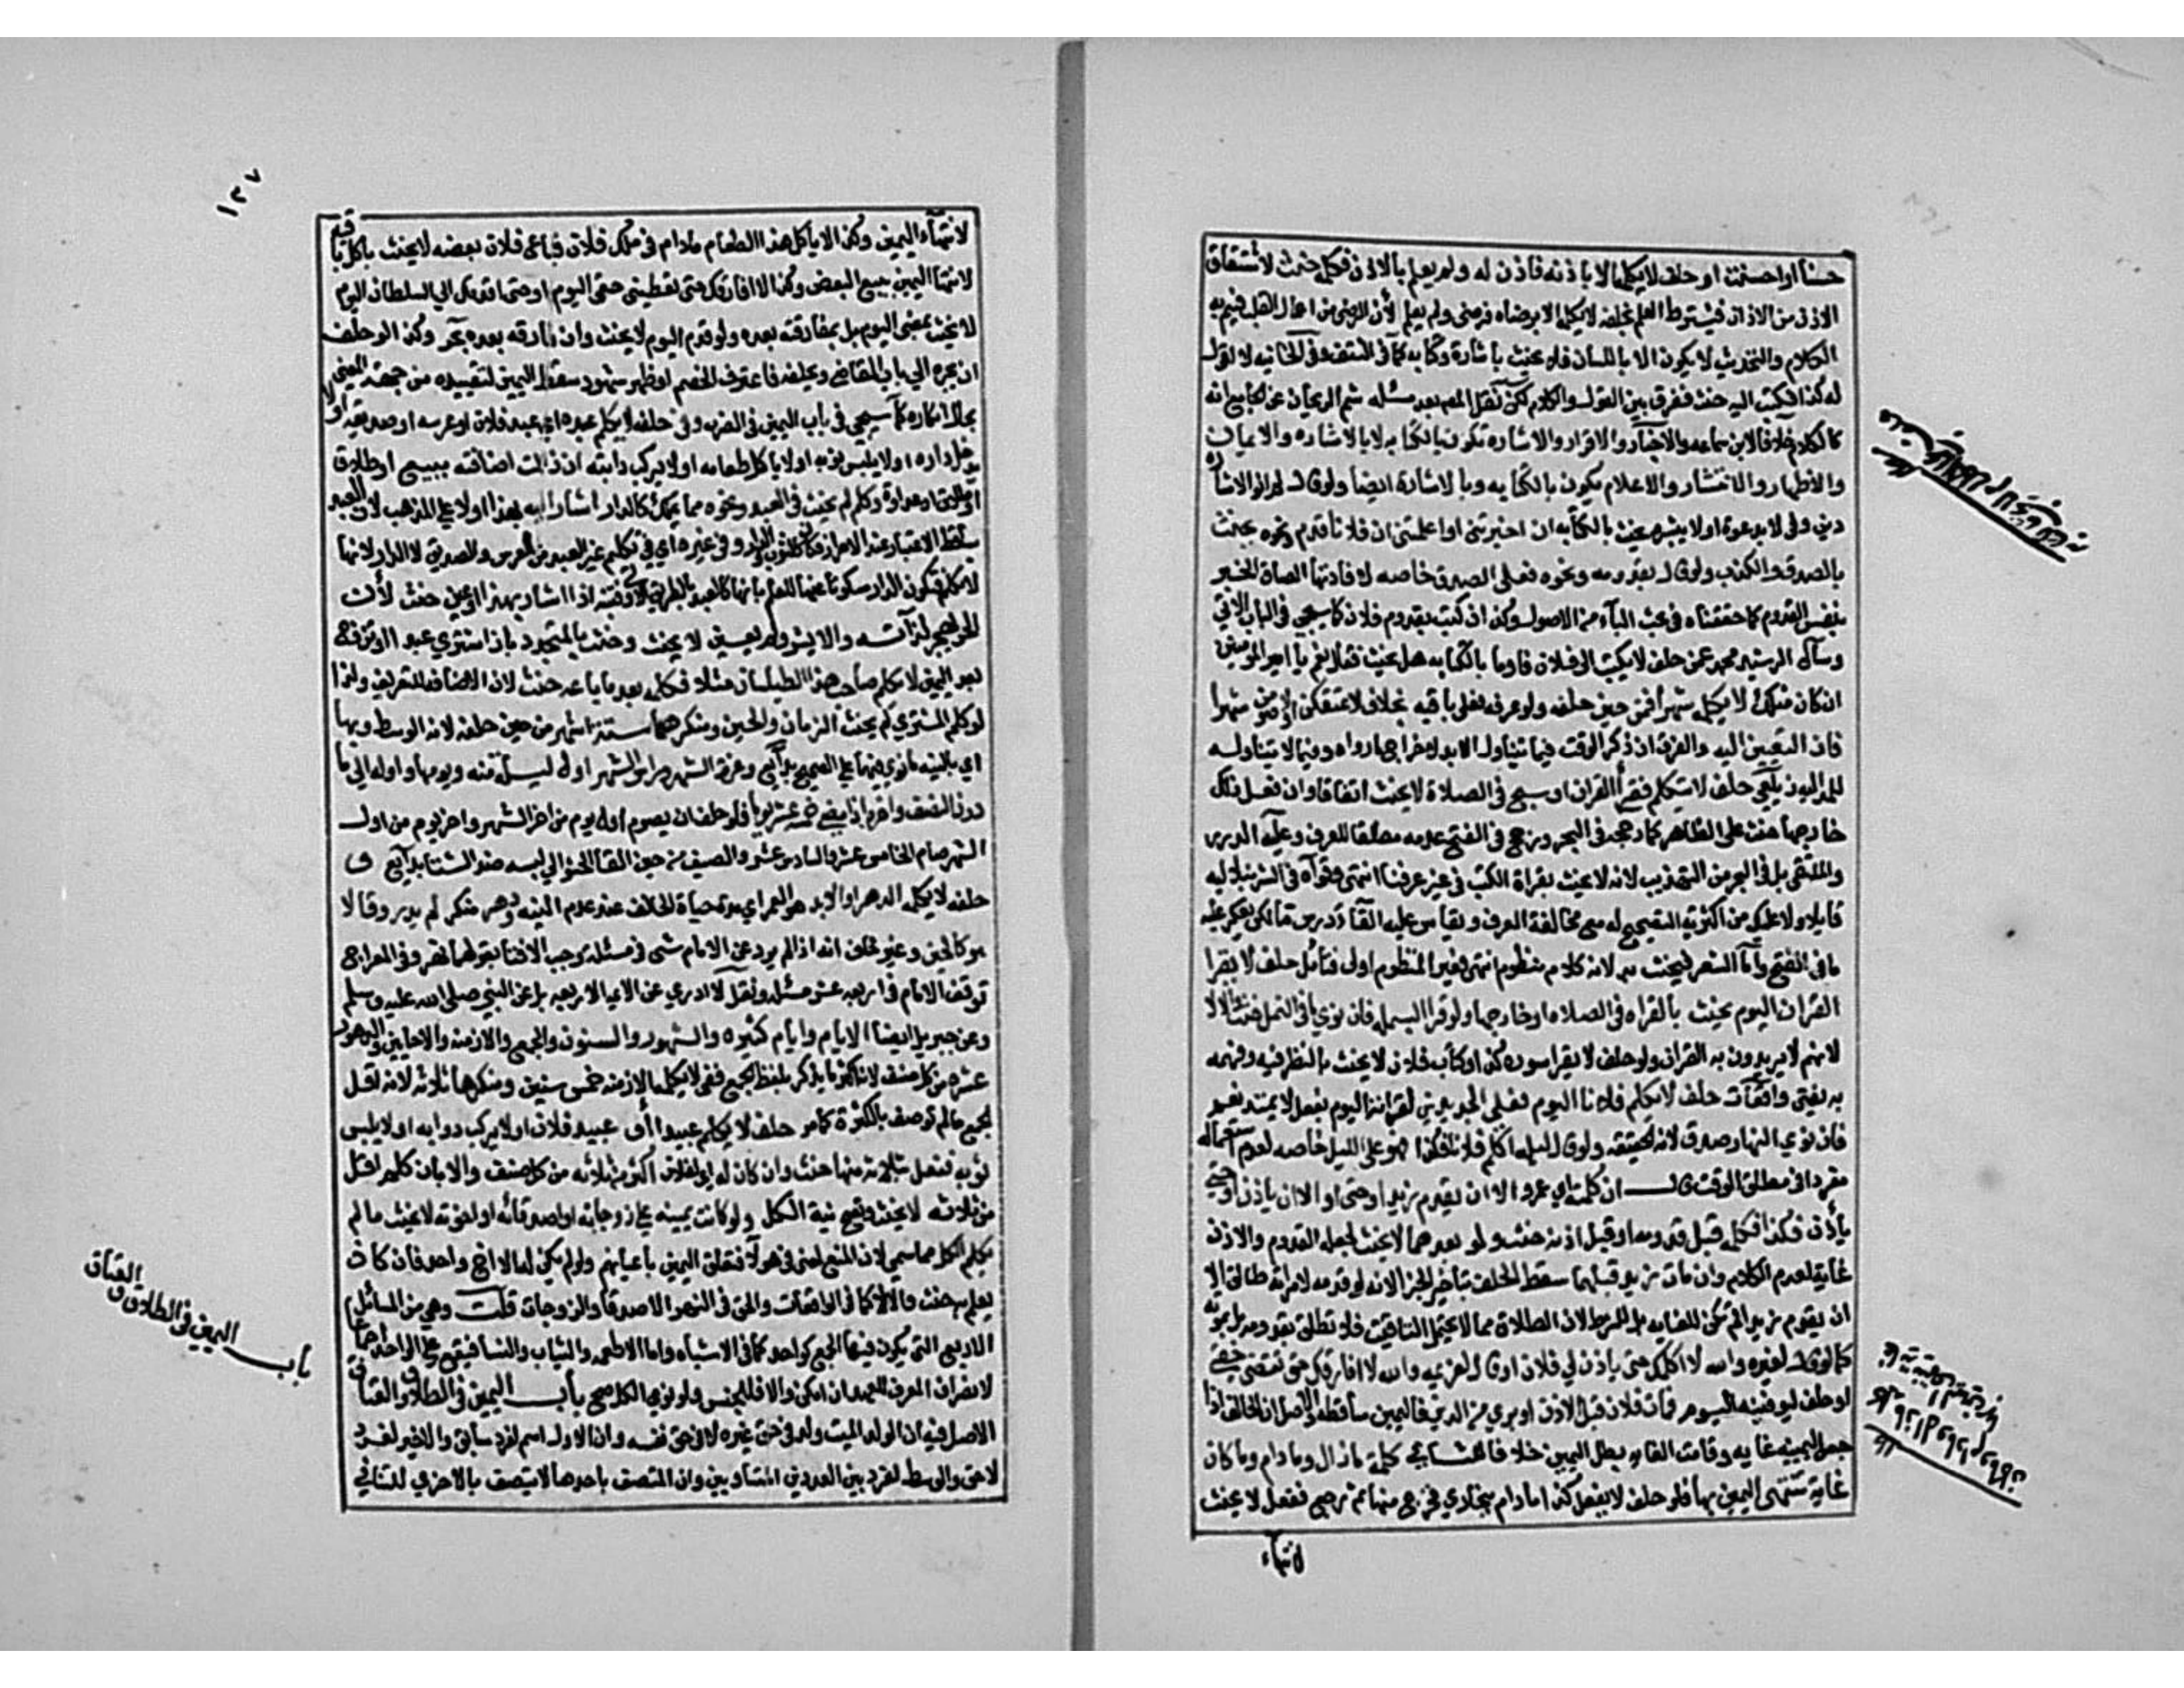 حسنا او احسنت او حلف لا يكلمه الا باذنه فاذن له ولم يعلم بالاذن فكلمه حنث لاشتقاق
الاذن من الاذان فيشترط العلم بخلاف لا يكلمه الا برضاه فرضى ولم يعلم لأن الرضى من اعمال القلب فيتم به
الكلام والتحديث لا يكون الا باللسان فلا يحنث باشارة وكتابه كما في النتف وفي الخانيه لا اقول
له كذا فكتب اليه حنث ففرق بين القول والكلام لكن نقل المص بعد مسئله شم الريحان عن الجامع انه
كالكلام خلافا لابن سماعه والاخبار والاقرار والاشاره تكون بالكتابه لا بالاشاره والايمان
والاظهار والافشاء والاعلام يكون بالكتابه وبالاشارة ايضا ولو قال لم انو الاشاره
دين وفي لا يدعوه او لا يبشره يحنث بالكتابه ان اخبرتنى او اعلمتنى ان فلانا قدم ونحوه يحنث
بالصدق والكذب ولو قال بقدومه ونحوه فعلى الصدق خاصه لافادتها الصاق الخبر
بنفس القدوم كما حققناه في بحث الباء من الاصول وكذا ان كتبت بقدوم فلان كما سيجي في الباب الاتي
وسأل الرشيد محمدا عمن حلف لا يكتب الى فلان فاوما بالكتابه هل يحنث فقال نعم يا امير المومنين
ان كان مثلك لا يكلمه شهرا فمن حين حلفه ولو عرفه فعلى باقيه بخلاف لاعتكفن او لاصومن شهرا
فان التعيين اليه والفرق ان ذكر الوقت فيما يتناول الابد لاخراج ما وراه وفيما لا يتناوله
للمد اليه زيلعي حلف لا يتكلم فقرأ القران او سبح في الصلاة لا يحنث اتفاقا وان فعل ذلك
خارجها حنث على الظاهر كما رجحه في البحر ورجح في الفتح عدمه مطلقا للعرف وعليه الدرر
والملتقى بل في البحر عن التهذيب لانه لا يحنث بقراة الكتب في عرفنا انتهى وقواه في الشرنبلاليه
قايلا ولا عليك من اكثرية التصحيح له مع مخالفة العرف ويقاس عليه القاء درس ما لكن يعكر عليه
ما في الفتح واما الشعر فيحنث به لانه كلام منظوم انتهى فغير المنظوم اولى فتأمل حلف لا يقرا
القران اليوم يحنث بالقراه في الصلاه او خارجها ولو قرا البسمله فان نوى ما في النمل حنث والا لا
لانهم لا يريدون به القران ولو حلف لا يقرا سورة كذا او كتاب فلان لا يحنث بالنظر فيه وفهمه
به يفتى واقعات حلف لا يكلم فلانا اليوم فعلى الجديدين لقرانه اليوم بفعل لا يمتد فعم
فان نوى النهار صدق لانه الحقيقه ولو قال ليلة اكلم فلانا فكذا فهو على الليل خاصه لعدم استعماله
مفردا في مطلق الوقت قال ان كلمته اي عمروا الا ان يقدم زيد او حتى او الا ان ياذن او حتى
يأذن فكذا فكلمه قبل قدومه او قبل اذنه حنث ولو بعدهما لا يحنث لجعله القدوم والاذن
غاية لعدم الكلام وان مات زيد قبلهما سقط الحلف بتاخير الجزا لانه لو قدمه لامراته طالق الا
ان يقدم زيد لم تكن للغايه بل للشرط لان الطلاق مما لا يحتمل التاقيت فلا تطلق بقدومه بل بموته
كما لو قال لغيره والله لا اكلمك حتى ياذن لي فلان او قال لغريمه والله لا افارقك حتى تقضى حقي
او حلف ليوفينه اليوم فمات فلان قبل الاذن او بري من الدين فاليمين ساقطه والاصل ان الحالف اذا
جعل ليمينه غايه وفاتت الغايه بطل اليمين خلافا للثاني كلمة مازال ومادام وما كان
غاية تنتهى اليمين بها فلو حلف لا يفعل كذا مادام ببخارى فخرج منها ثم رجع ففعل لا يحنث
لانتهاء
١٢٧
لانتهاء اليمين وكذا لا يأكل هذا الطعام مادام في ملك فلان فباع فلان بعضه لا يحنث باكل باقيه
لانتهاء اليمين ببيع البعض وكذا لا افارقك حتى تعطينى حقى اليوم او حتى اقدمك الى السلطان اليوم
لا يحنث بمضى اليوم بل بمفارقته بعده ولو قدم اليوم لا يحنث وان فارقه بعده بحر وكذا لو حلف
ان يجره الى باب القاضي ويحلفه فاعترف الخصم او ظهر شهود سقط اليمين لتقييده من جهة المعنى
بحال انكاره كما سيجي في باب اليمين في الضرب وفي حلفه لا يكلم عبده اي عبد فلان او عرسه او صديقه او لا
يدخل داره او لا يلبس ثوبه او لا ياكل طعامه او لا يركب دابته ان زالت اضافته ببيع او طلاق
او عداوة وكلمه لم يحنث في العبد ونحوه مما يملك كالدار اشار اليه بهذا اولا على المذهب لان العبد
ساقط الاعتبار عند الاحرار فكان كالثوب والدار وفي غيره اي في تكليم غير العبد من العرس والصديق لا الدار لانها
لا تكلم فتكون الدار مسكوتا عنها للعلم بانها كالعبد بالطريق الاولى فتنبه اذا اشار بهذا او عين حنث لأن
الحر يهجر لذاته والا يشر ولم يعين لا يحنث وحنث بالمتجدد بان اشترى عبدا او تزوج
بعد اليمين لا يكلم صاحب هذا الطيلسان مثلا فكلمه بعد ما باعه حنث لان الاضافه للتعريف ولذا
لو كلم المشتري لم يحنث الزمان والحين ومنكرهما ستة اشهر من حين حلفه لانه الوسط وبها
اي بالنيه ما نوى فيهما على الصحيح بدائع وغرة الشهر وراس الشهر اول ليلة منه ويومها واوله الى ما
دون النصف واخره اذا مضى خمسة عشر يوما فلو حلف ان يصوم اول يوم من اخر الشهر واخر يوم من اول
الشهر صام الخامس عشر والسادس عشر والصيف من حين القا الحشو الى لبسه ضد الشتا بدائع وفي
حلفه لا يكلمه الدهر او الابد هو العمر اي مدة حياة الحالف عند عدم النيه ودهر منكر لم يدر وقالا
هو كالحين وغير خاف انه اذا لم يرد عن الامام شى في مسئله وجب الافتا بقولهما نهر وفي السراج
توقف الامام في اربعه عشر مسئله ونقل لا ادري عن الايمة الاربعه بل عن النبي صلى الله عليه وسلم
وعن جبريل ايضا الايام وايام كثيره والشهور والسنون والجمع والازمنه والاحايين والدهور
عشره من كل صنف لانه اكثر ما يذكر بلفظ الجمع ففي لا يكلمه الازمنه خمس سنين ومنكرها ثلاثه لانه اقل
الجمع ما لم توصف بالكثرة كما مر حلف لا يكلم عبيدا او عبيد فلان او لا يركب دوابه او لا يلبس
ثوبه ففعل بثلاثة منها حنث وان كان له اي لفلان اكثر من ثلاثه من كل صنف والا بان كلم اقل
من ثلاثه لا يحنث وتصح نية الكل ولو كانت يمينه على زوجاته او اصدقائه او اخوته لا يحنث ما لم
يكلم الكل مما سمي لان المنع لمعنى في هولا فتعلق اليمين باعيانهم ولو لم يكن له الا اخ واحد فان كان
يعلم به حنث والا لا كما في الواقعات والحق في النهر الاصدقا والزوجات قلت وهي من المسائل
الاربع التي يكون فيها الجمع كواحد كما في الاشباه واما الاطعمه والثياب والنسا فيقع على الواحد اجماعا
لانصراف المعرف للعهد ان امكن والا فللجنس ولو نوى الكل صح باب اليمين في الطلاق والعتاق
الاصل فيه ان الولد الميت ولد في حق غيره لا في حق نفسه وان الاول اسم لفرد سابق والاخير لفرد
لاحق والوسط لفرد بين العددين المتساويين وان المتصف باحدها لا يتصف بالاخرى للتنافي
باب اليمين في الطلاق والعتاق